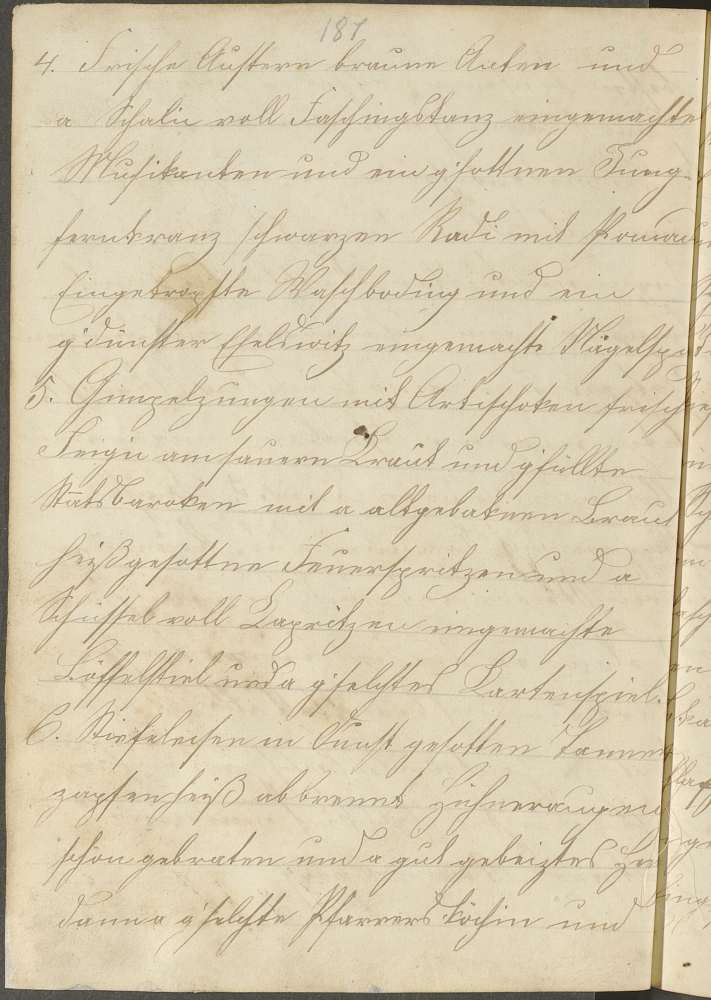 187
4. Frische Austern braune Anten und
a Schalie voll Faschingstanz eingemachte
Musikanten und ein g'sottnen Jung-
fernkranz schwarzen Radi mit Pomad
Eingetropfte Waschboding und ein
g'dünster Eselswitz eingemachte Nägelspa
5. Gimpelzungen mit Artischoken frische
Feigen am sauern Kraut und g'füllte
Statsbaroken mit a altgebaknen Braut
heißgesottne Feuerspritzen und a
Schüssel voll Kapritzen eingemachte
Löffelstiel und a g'selchtes Kartenspiel.
6. Stiefeleisen in Dunst gesotten Tannen
zapfen heiß abbrennt Hühneraugen
schön gebraten und a gut gebeiztes
dann a g'selchte Pfarrersköchin und